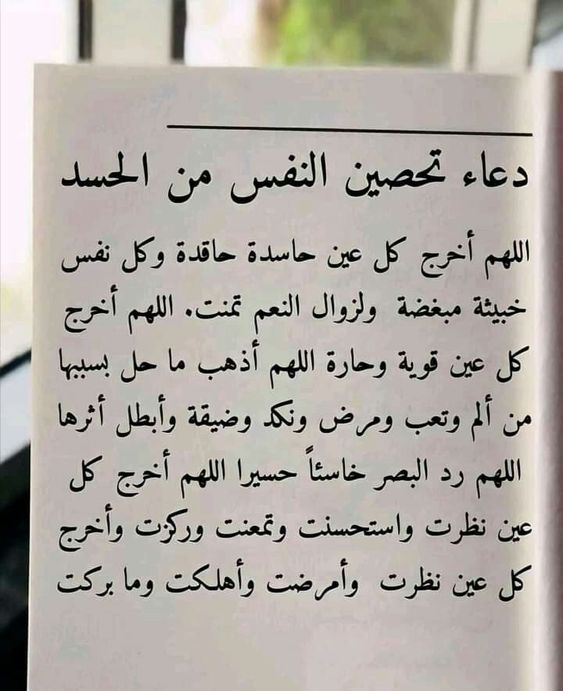 دعاء تحصين النفس من الحسد
اللهم أخرج كل عين حاسدة حاقدة وكل نفس
خبيثة مبغضة ولزوال النعم تمنت. اللهم أخرج
كل عين قوية وحارة اللهم أذهب ما حل بسببها
من ألم وتعب ومرض ونكد وضيقة وأبطل أثرها
اللهم رد البصر خاسئاً حسيرا اللهم أخرج كل
عين نظرت واستحسنت وتمعنت وركزت وأخرج
كل عين نظرت وأمرضت وأهلكت وما بركت